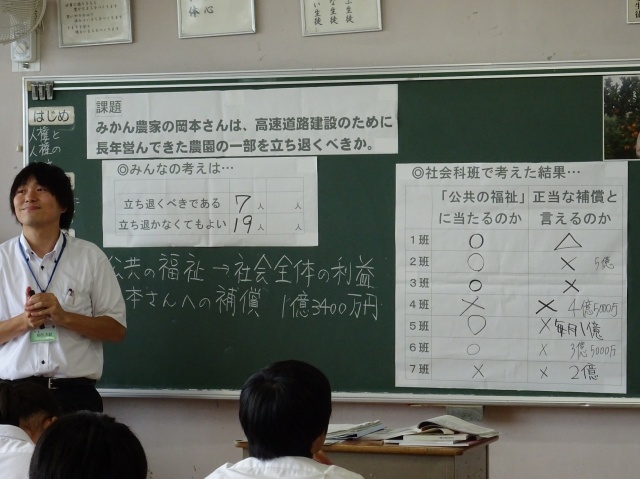 い生徒
な生徒
ふ生徒
体心
はじめ
人権と
人権の
課題
みかん農家の岡本さんは、高速道路建設のために
長年営んできた農園の一部を立ち退くべきか。
◎みんなの考えは…
立ち退くべきである 7人 人
立ち退かなくてもよい 19人 人
公共の福祉→社会全体の利益
本さんへの補償 1億3400万円
◎社会科班で考えた結果…
「公共の福祉」に当たるのか 正当な補償と言えるのか
1班 ○ △
2班 ○ × 5億
3班 ○ ×
4班 × × 4億5000万
5班 ○ × 毎月1億
6班 ○ × 3億5000万
7班 × × 2億